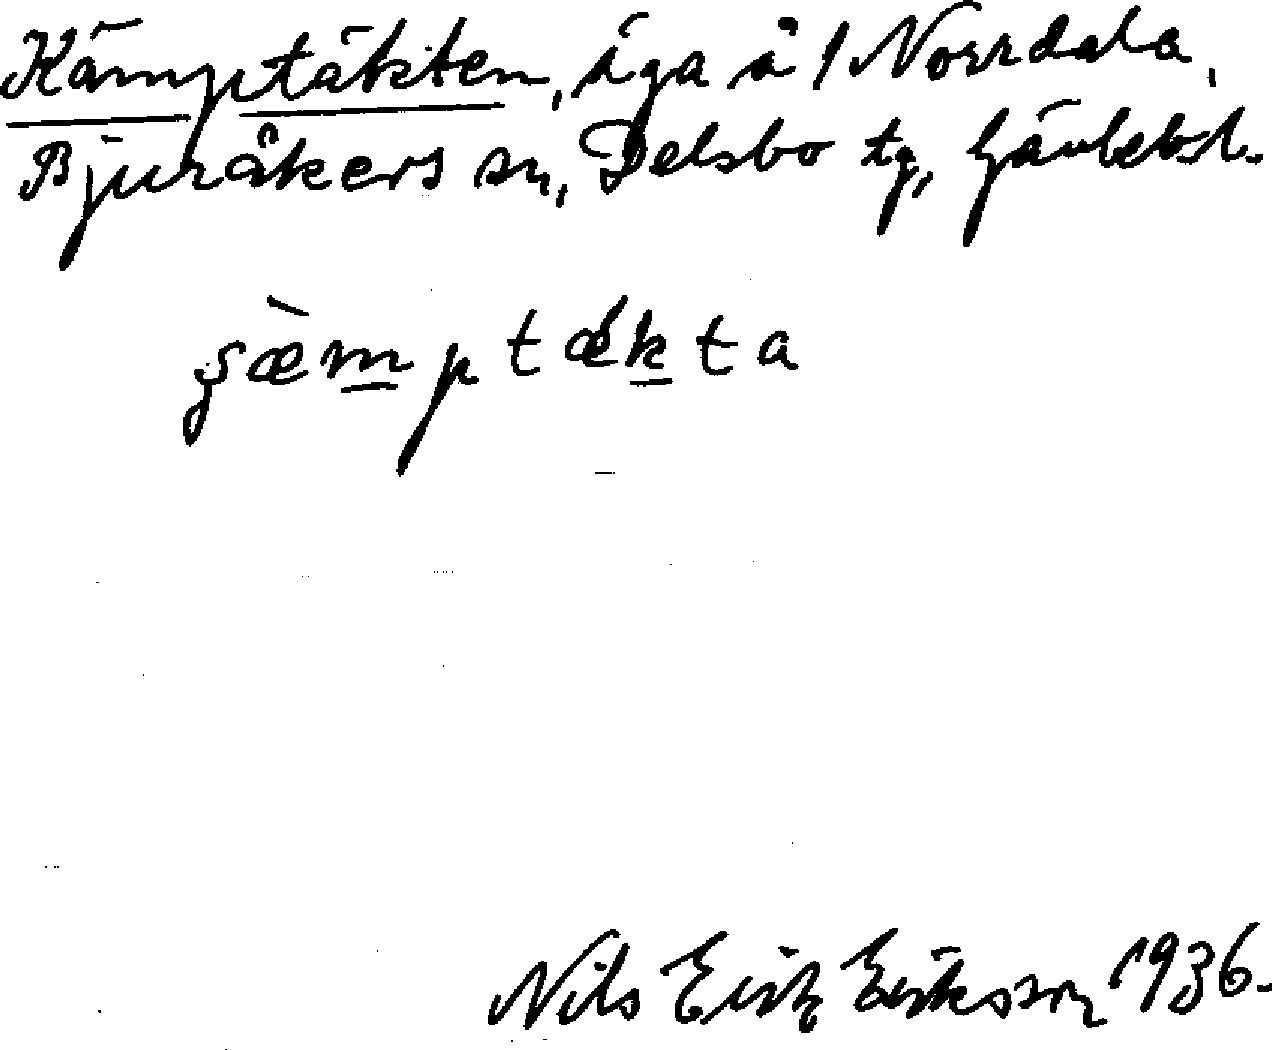 Kämptäkten, äga å 1 Norrdala,
Bjuråkers sn, Delsbo tg, Gävlebl.
Nils Erik Eriksson 1936.